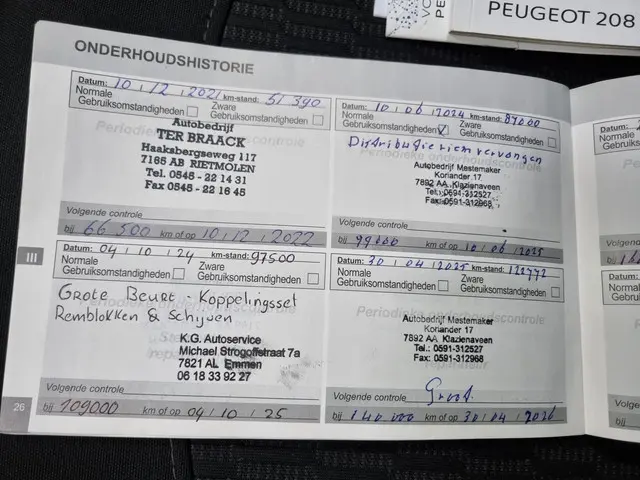 PEUGEOT 208
ONDERHOUDSHISTORIE
Datum: 10 / 12 / 2021 km-stand: 51 390
Normale Gebruiksomstandigheden
Zware Gebruiksomstandigheden
Autobedrijf
TER BRAACK
Haaksbergseweg 117
7165 AB RIETMOLEN
Tel. 0545 - 22 14 31
Fax 0545 - 22 16 45
Volgende controle
bij 66 500 km of op 10 / 12 / 2022
Datum: 10 / 06 / 2024 km-stand: 87000
Normale Gebruiksomstandigheden
Zware Gebruiksomstandigheden
Distributieriem vervangen
Autobedrijf Mestemaker
Koriander 17
7892 AA Klazienaveen
Tel.: 0591-312527
Fax: 0591-312968
Volgende controle
bij 99000 km of op 10 / 06 / 2025
III
Datum: 04 / 10 / 24 km-stand: 97500
Normale Gebruiksomstandigheden
Zware Gebruiksomstandigheden
Grote Beurt - Koppelingsset
Remblokken & Schijven
K.G. Autoservice
Michael Strogoffstraat 7a
7821 AL Emmen
06 18 33 92 27
Volgende controle
bij 109000 km of op 04 / 10 / 25
Datum: 30 / 04 / 2025 km-stand:
Normale Gebruiksomstandigheden
Zware Gebruiksomstandigheden
Periodieke onderhoudscontrole
Autobedrijf Mestemaker
Koriander 17
7892 AA Klazienaveen
Tel.: 0591-312527
Fax: 0591-312968
Groot
Volgende controle
bij 140 000 km of op 30 / 04 / 2026
26